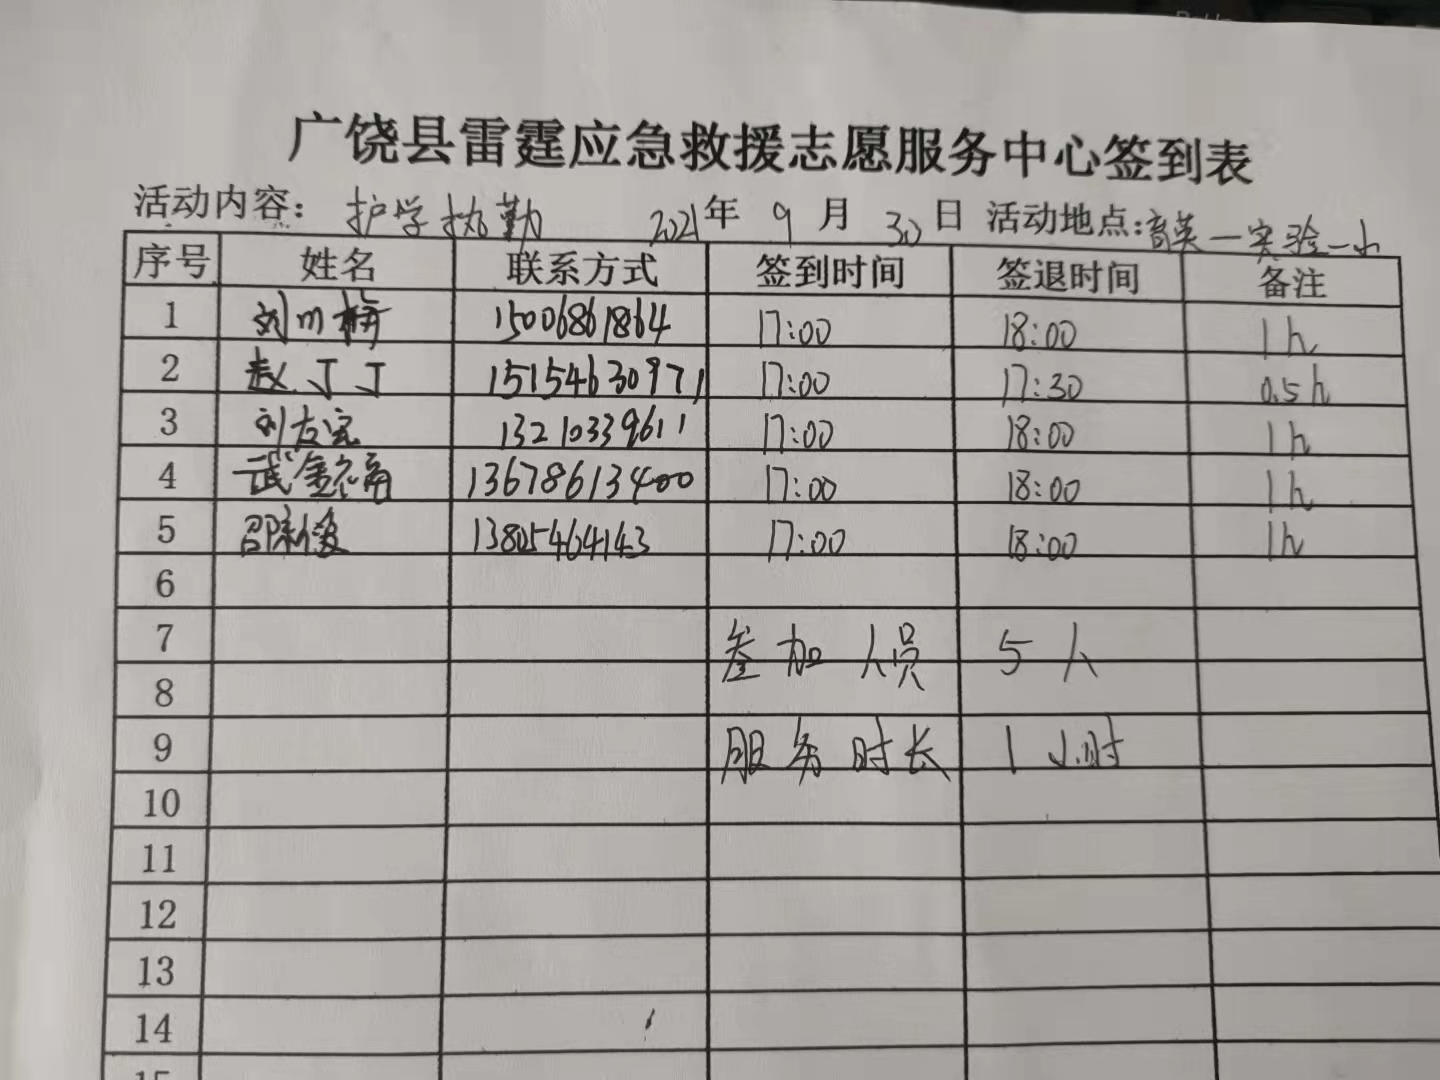 广饶县雷霆应急救援志愿服务中心签到表
活动内容: 护学执勤 2021年 9月 30日 活动地点:育英一实验一小
序号 姓名 联系方式 签到时间 签退时间 备注
1 刘 15006861864 17:00 18:00 1h
2 赵丁丁 15154630971 17:00 17:30 0.5h
3 刘友宝 13210339611 17:00 18:00 1h
4 武 13678613400 17:00 18:00 1h
5 邵新俊 13805464143 17:00 18:00 1h
6
7 参加人员 5人
8
9 服务时长 1小时
10
11
12
13
14
15